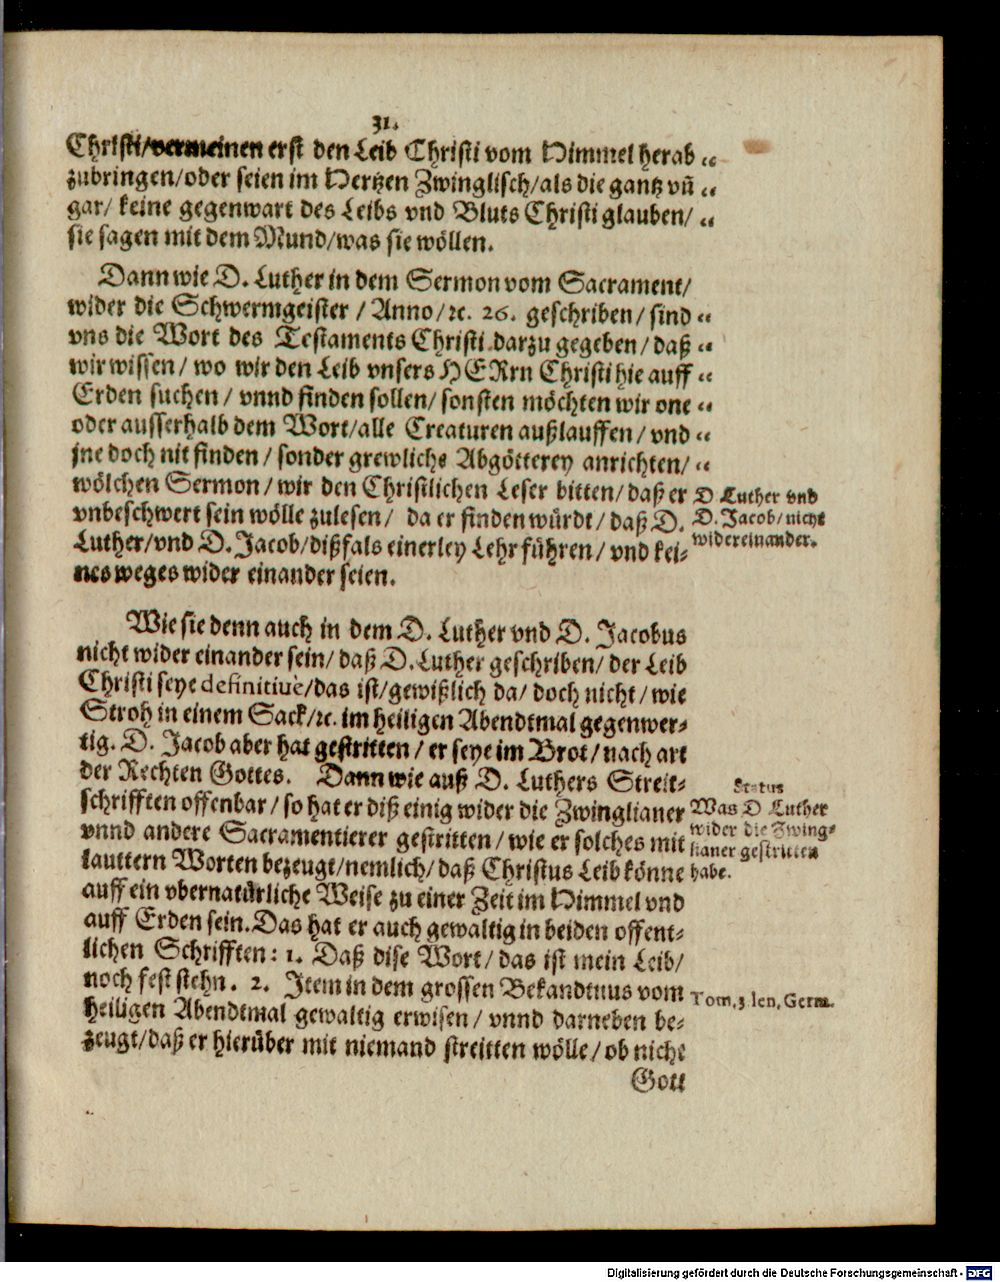 31.
Christi/vermeinen erst den Leib Christi vom Himmel herab „
zubringen/oder seien im Hertzen Zwinglisch/als die gantz vñ „
gar/ keine gegenwart des Leibs vnd Bluts Christi glauben/ „
sie sagen mit dem Mund/was sie wöllen.
Dann wie D. Luther in dem Sermon vom Sacrament/
wider die Schwermgeister / Anno/ꝛc. 26. geschriben/ sind „
vns die Wort des Testaments Christi darzu gegeben/ daß „
wir wissen/ wo wir den Leib vnsers HERrn Christi hie auff „
Erden suchen / vnnd finden sollen/ sonsten möchten wir one „
oder ausserhalb dem Wort/alle Creaturen außlauffen/ vnd „
jne doch nit finden / sonder grewliche Abgötterey anrichten/ „
wölchen Sermon / wir den Christlichen Leser bitten/ daß er
vnbeschwert sein wölle zulesen/ da er finden würdt/ daß D.
Luther/vnd D. Jacob/dißfals einerley Lehr führen/ vnd kei-
nes weges wider einander seien.
D Luther vnd
D. Jacob/ nicht
widereinander.
Wie sie denn auch in dem D. Luther vnd D. Jacobus
nicht wider einander sein/ daß D. Luther geschriben/ der Leib
Christi seye definitiuè/das ist/gewißlich da/ doch nicht/ wie
Stroh in einem Sack/ꝛc. im heiligen Abendtmal gegenwer-
tig. D. Jacob aber hat gestritten / er seye im Brot/ nach art
der Rechten Gottes. Dann wie auß D. Luthers Streit-
schrifften offenbar/ so hat er diß einig wider die Zwinglianer
vnnd andere Sacramentierer gestritten/ wie er solches mit
lauttern Worten bezeugt/nemlich/ daß Christus Leib könne
auff ein vbernatürliche Weise zu einer Zeit im Himmel vnd
auff Erden sein. Das hat er auch gewaltig in beiden offent-
lichen Schrifften: 1. Daß dise Wort/ das ist mein Leib/
noch fest stehn. 2. Item in dem grossen Bekandtnus vom
heiligen Abendtmal gewaltig erwisen/ vnnd darneben be-
zeugt/daß er hierüber mit niemand streitten wölle/ ob nicht
Status
Was D Luther
wider die Zwing-
lianer gestritten
habe.
Tom. 3 Ien. Germ.
Gott
Digitalisierung gefördert durch die Deutsche Forschungsgemeinschaft - DFG